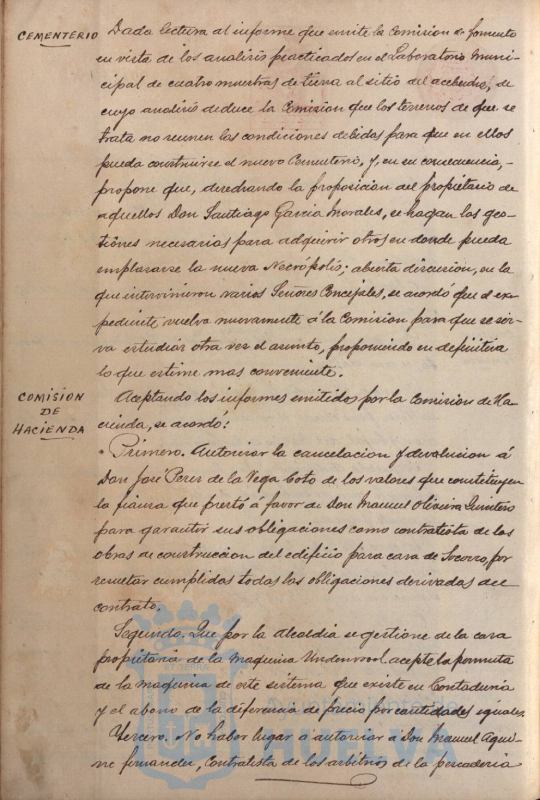 CEMENTERIO
Dada lectura al informe que emite la Comision de fomento
en vista de los analisis practicados en el Laboratorio Muni-
cipal de cuatro muestras de tierra al sitio del acebuche, de
cuyo analisis deduce la Comision que los terrenos de que se
trata no reunen las condiciones debidas para que en ellos
pueda construirse el nuevo Cementerio, y, en su consecuencia,-
propone que, desechando la proposicion del propietario de
aquellos Don Santiago Garcia Morales, se hagan las ges-
tiones necesarias para adquirir otros en donde pueda
emplazarse la nueva Necrópolis; abierta discusion, en la
que intervinieron varios Señores Concejales, se acordó que el ex-
pediente vuelva nuevamente á la Comision para que se sir-
va estudiar otra vez el asunto, proponiendo en definitiva
lo que estime mas conveniente.
COMISION
DE
HACIENDA
Aceptando los informes emitidos por la Comision de Ha-
cienda, se acordó:
Primero. Autorizar la cancelacion y devolucion á
Don José Perez de la Vega Coto de los valores que constituyen
la fianza que prestó á favor de Don Manuel Oliveira Quintero
para garantir sus obligaciones como contratista de las
obras de construccion del edificio para casa de Socorro, por
resultar cumplidas todas las obligaciones derivadas del
contrato.
Segundo. Que por la Alcaldia se gestione de la casa
propietaria de la maquina Underwool acepte la permuta
de la maquina de este sistema que existe en Contaduria
y el abono de la diferencia de precio por cantidades iguales.
Tercero. No haber lugar a autorizar a Don Manuel Agui-
rre fernandez, Contratista de los arbitrios de la pescaderia
HUELVA